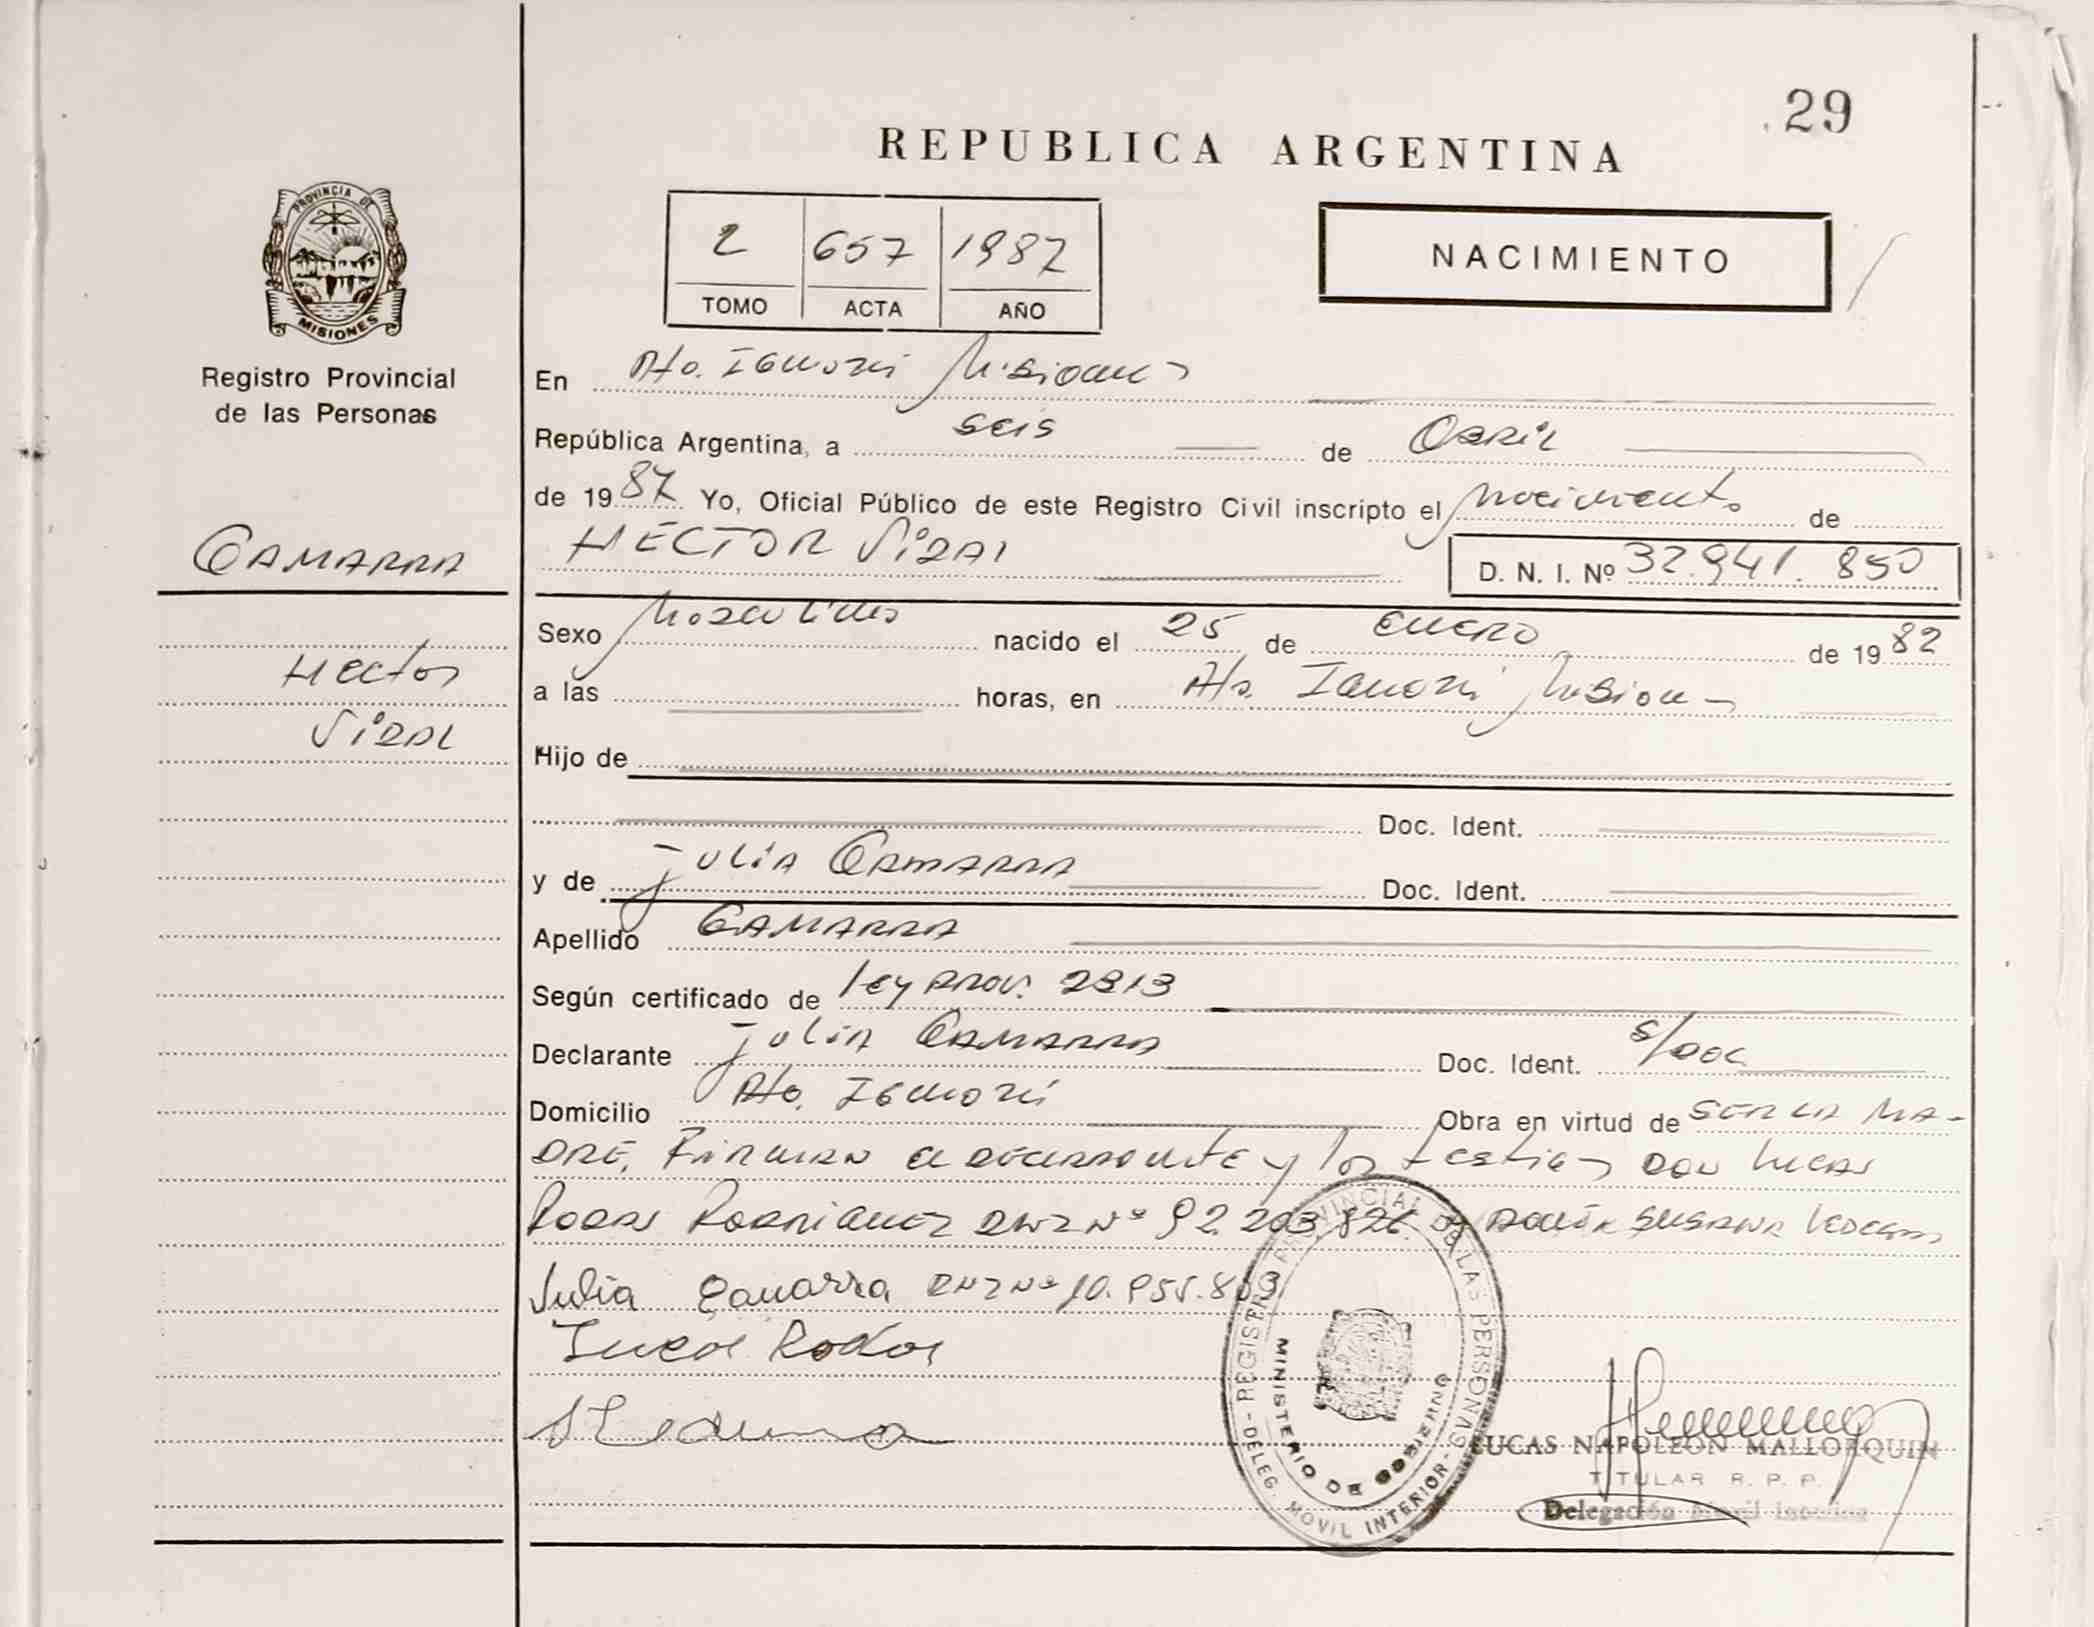 29
REPUBLICA ARGENTINA
PROVINCIA DE
MISIONES
Registro Provincial
de las Personas
2 657 1987
TOMO ACTA AÑO
NACIMIENTO
En Pto. Iguazú Misiones
República Argentina, a seis de Abril
de 1987 Yo, Oficial Público de este Registro Civil inscripto el nacimiento de
GAMARRA
HECTOR VIDAL
D. N. I. Nº 32.941.850
Sexo Masculino nacido el 25 de ENERO de 1982
Hector
a las horas, en Pto. Iguazú Misiones
VIDAL
Hijo de
Doc. Ident.
y de Julia GAMARRA Doc. Ident.
Apellido GAMARRA
Según certificado de Ley Prov. 2313
Declarante Julia GAMARRA Doc. Ident. s/doc
Domicilio Pto. Iguazú Obra en virtud de SER LA MA-
DRE, Firman el declarante y los testigos don Lucas
Rodas Rodriguez DNI Nº 92.203.826 y doña SUSANA
Julia Gamarra DNI Nº 10.955.
Lucas Rodas
REGISTRO PROVINCIAL DE LAS PERSONAS
MINISTERIO DE GOBIERNO
DELEG. MOVIL INTERIOR
LUCAS NAPOLEON MALLORQUIN
TITULAR R. P. P.
Delegación Movil Interior